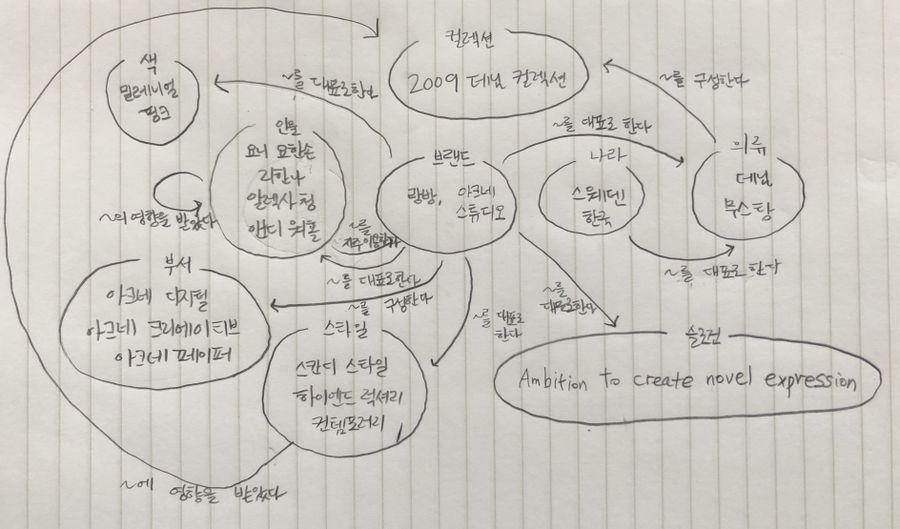 컬렉션
2009 데님 컬렉션
색
밀레니얼
핑크
~를 대표로한다
~를 구성한다
~를 대표로 한다
인물
요니 요한손
리한나
알렉사 청
앤디 워홀
브랜드
랑방, 아크네
스튜디오
나라
스웨덴
한국
의류
데님
무스탕
~의 영향을 받았다
~를
자주이용한다
~를 대표로한다
~를 대표로 한다
부서
아크네 디지털
아크네 크리에이티브
아크네 페이퍼
~를 구성한다
~를 대표로
한다
~를
대표로한다
스타일
스칸디 스타일
하이엔드 럭셔리
컨템포러리
슬로건
Ambition to create novel expression
~에 영향을 받았다